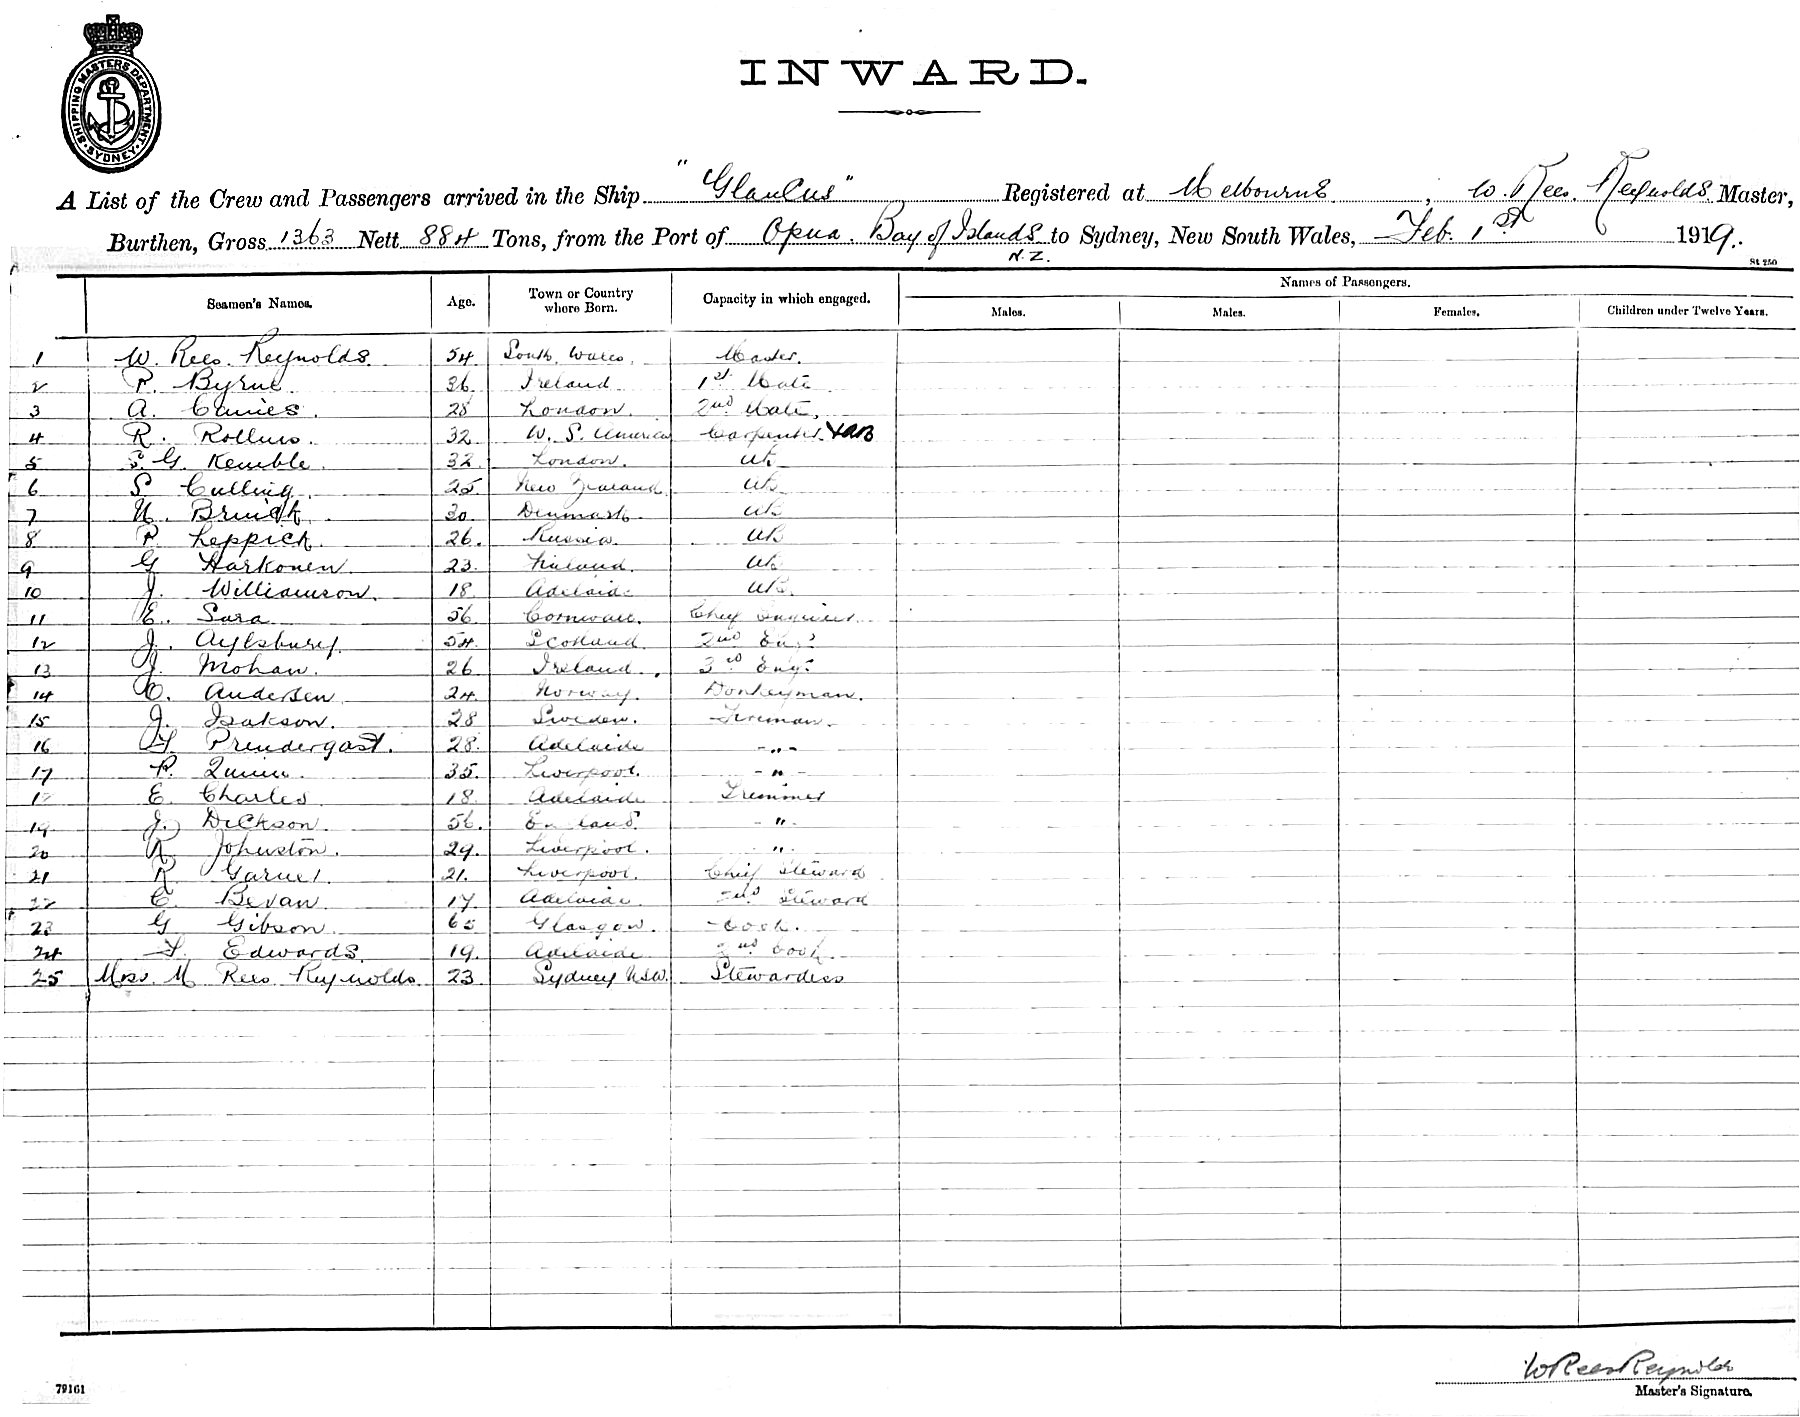 SHIPPING MASTERS DEPARTMENT
SYDNEY
INWARD.
A List of the Crew and Passengers arrived in the Ship "Glaucus" Registered at Melbourne, W. Rees. Reynolds Master,
Burthen, Gross 1363 Nett 884 Tons, from the Port of Opua. Bay of Islands to Sydney, New South Wales, Feb. 1st 1919.
N.Z.
St 250
Seamen's Names. Age. Town or Country where Born. Capacity in which engaged. Names of Passengers.
Males. Males. Females. Children under Twelve Years.
1 W. Rees. Reynolds. 54 South Wales. Master.
2 P. Byrne 36 Ireland 1st Mate
3 A. 28 London. 2nd Mate.
4 R. Rollins. 32 W. S. America Carpenter & AB
5 S. G. Kemble. 32 London. AB
6 S Culling. 25 New Zealand AB
7 30 Denmark AB
8 P. Leppick. 26. Russia. AB
9 G Harkonen. 23. Finland. AB
10 J. Williamson. 18 Adelaide AB.
11 E. Sara 56 Cornwall. Chief Engineer.
12 J. Aylsbury. 54. Scotland 2nd Eng.
13 J. Mohan. 26 Ireland. 3rd Eng.
14 C. Andersen 24. Norway. Donkeyman.
15 J. Isakson. 28 Sweden. Fireman.
16 F. Prendergast. 28. Adelaide - " -
17 P. Quinn. 35. Liverpool. - " -
18 E. Charles 18. Adelaide Trimmer
19. J. Dickson. 56. England. - " -
20 R. Johnston. 29. Liverpool. "
21 R Garner. 21. Liverpool. Chief Steward
22 C. Bevan 17. Adelaide. 2nd Steward
23 G Gibson. 65 Glasgow. Cook.
24 F. Edwards. 19. Adelaide 2nd Cook.
25 Mrs. M Rees Reynolds. 23 Sydney NSW. Stewardess
W Rees Reynolds
79161 Master's Signature.